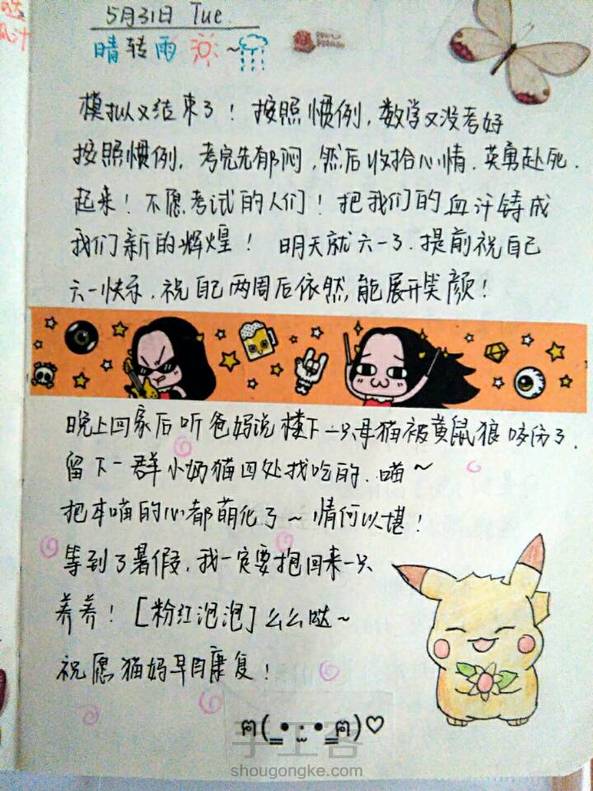 5月31日 Tue.
晴转雨 ~
模拟又结束了！按照惯例，数学又没考好
按照惯例，考完先郁闷，然后收拾心情，英勇赴死.
起来！不愿考试的人们！把我们的血汗铸成
我们新的辉煌！明天就六一了.提前祝自己
六一快乐.祝自己两周后依然能展开笑颜！
晚上回家后听爸妈说楼下一只母猫被黄鼠狼咬伤了.
留下一群小奶猫四处找吃的.喵~
把本喵的心都萌化了~情何以堪！
等到了暑假，我一定要抱回来一只
养养！[粉红泡泡]么么哒~
祝愿猫妈早日康复！
手工客
shougongke.com